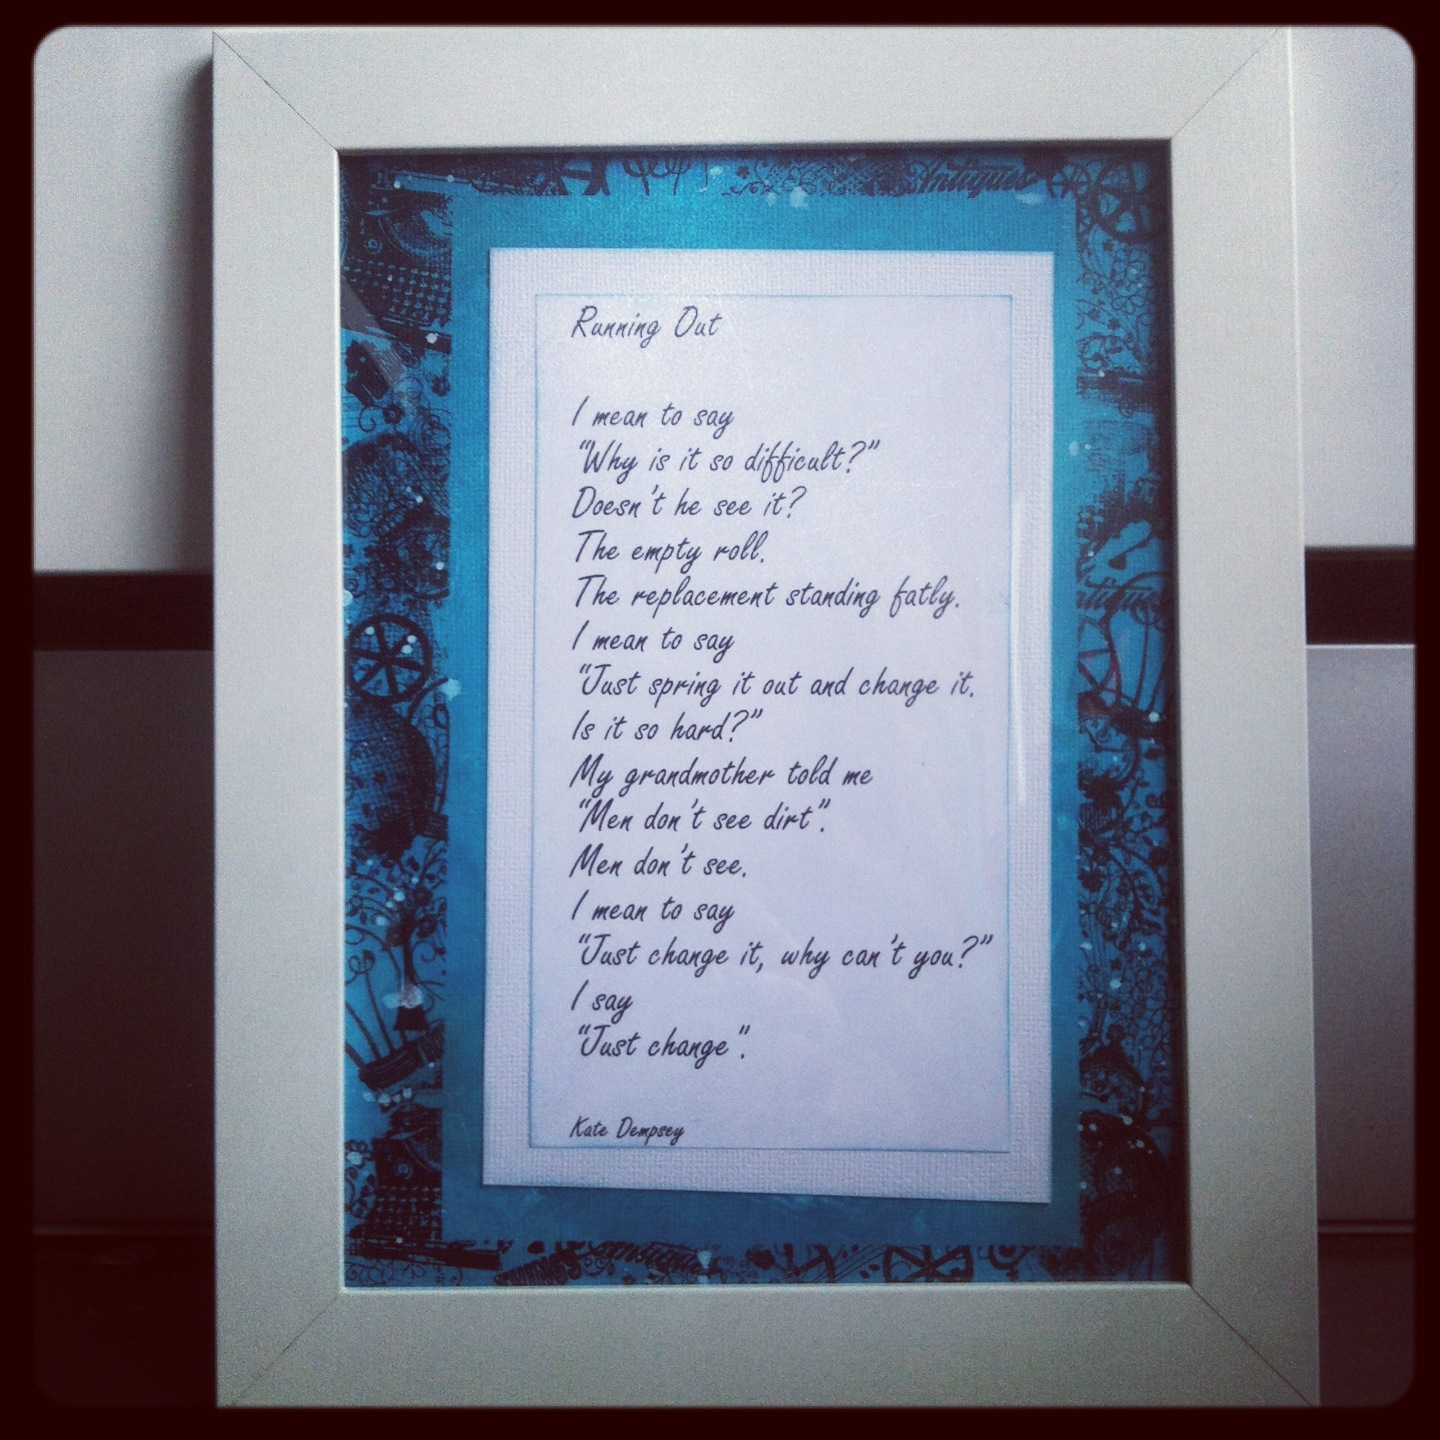 Antiques
Running Out
I mean to say
“Why is it so difficult?”
Doesn't he see it?
The empty roll.
The replacement standing fatly.
I mean to say
“Just spring it out and change it.
Is it so hard?”
My grandmother told me
“Men don't see dirt”.
Men don't see.
I mean to say
“Just change it, why can't you?”
I say
“Just change”.
Kate Dempsey